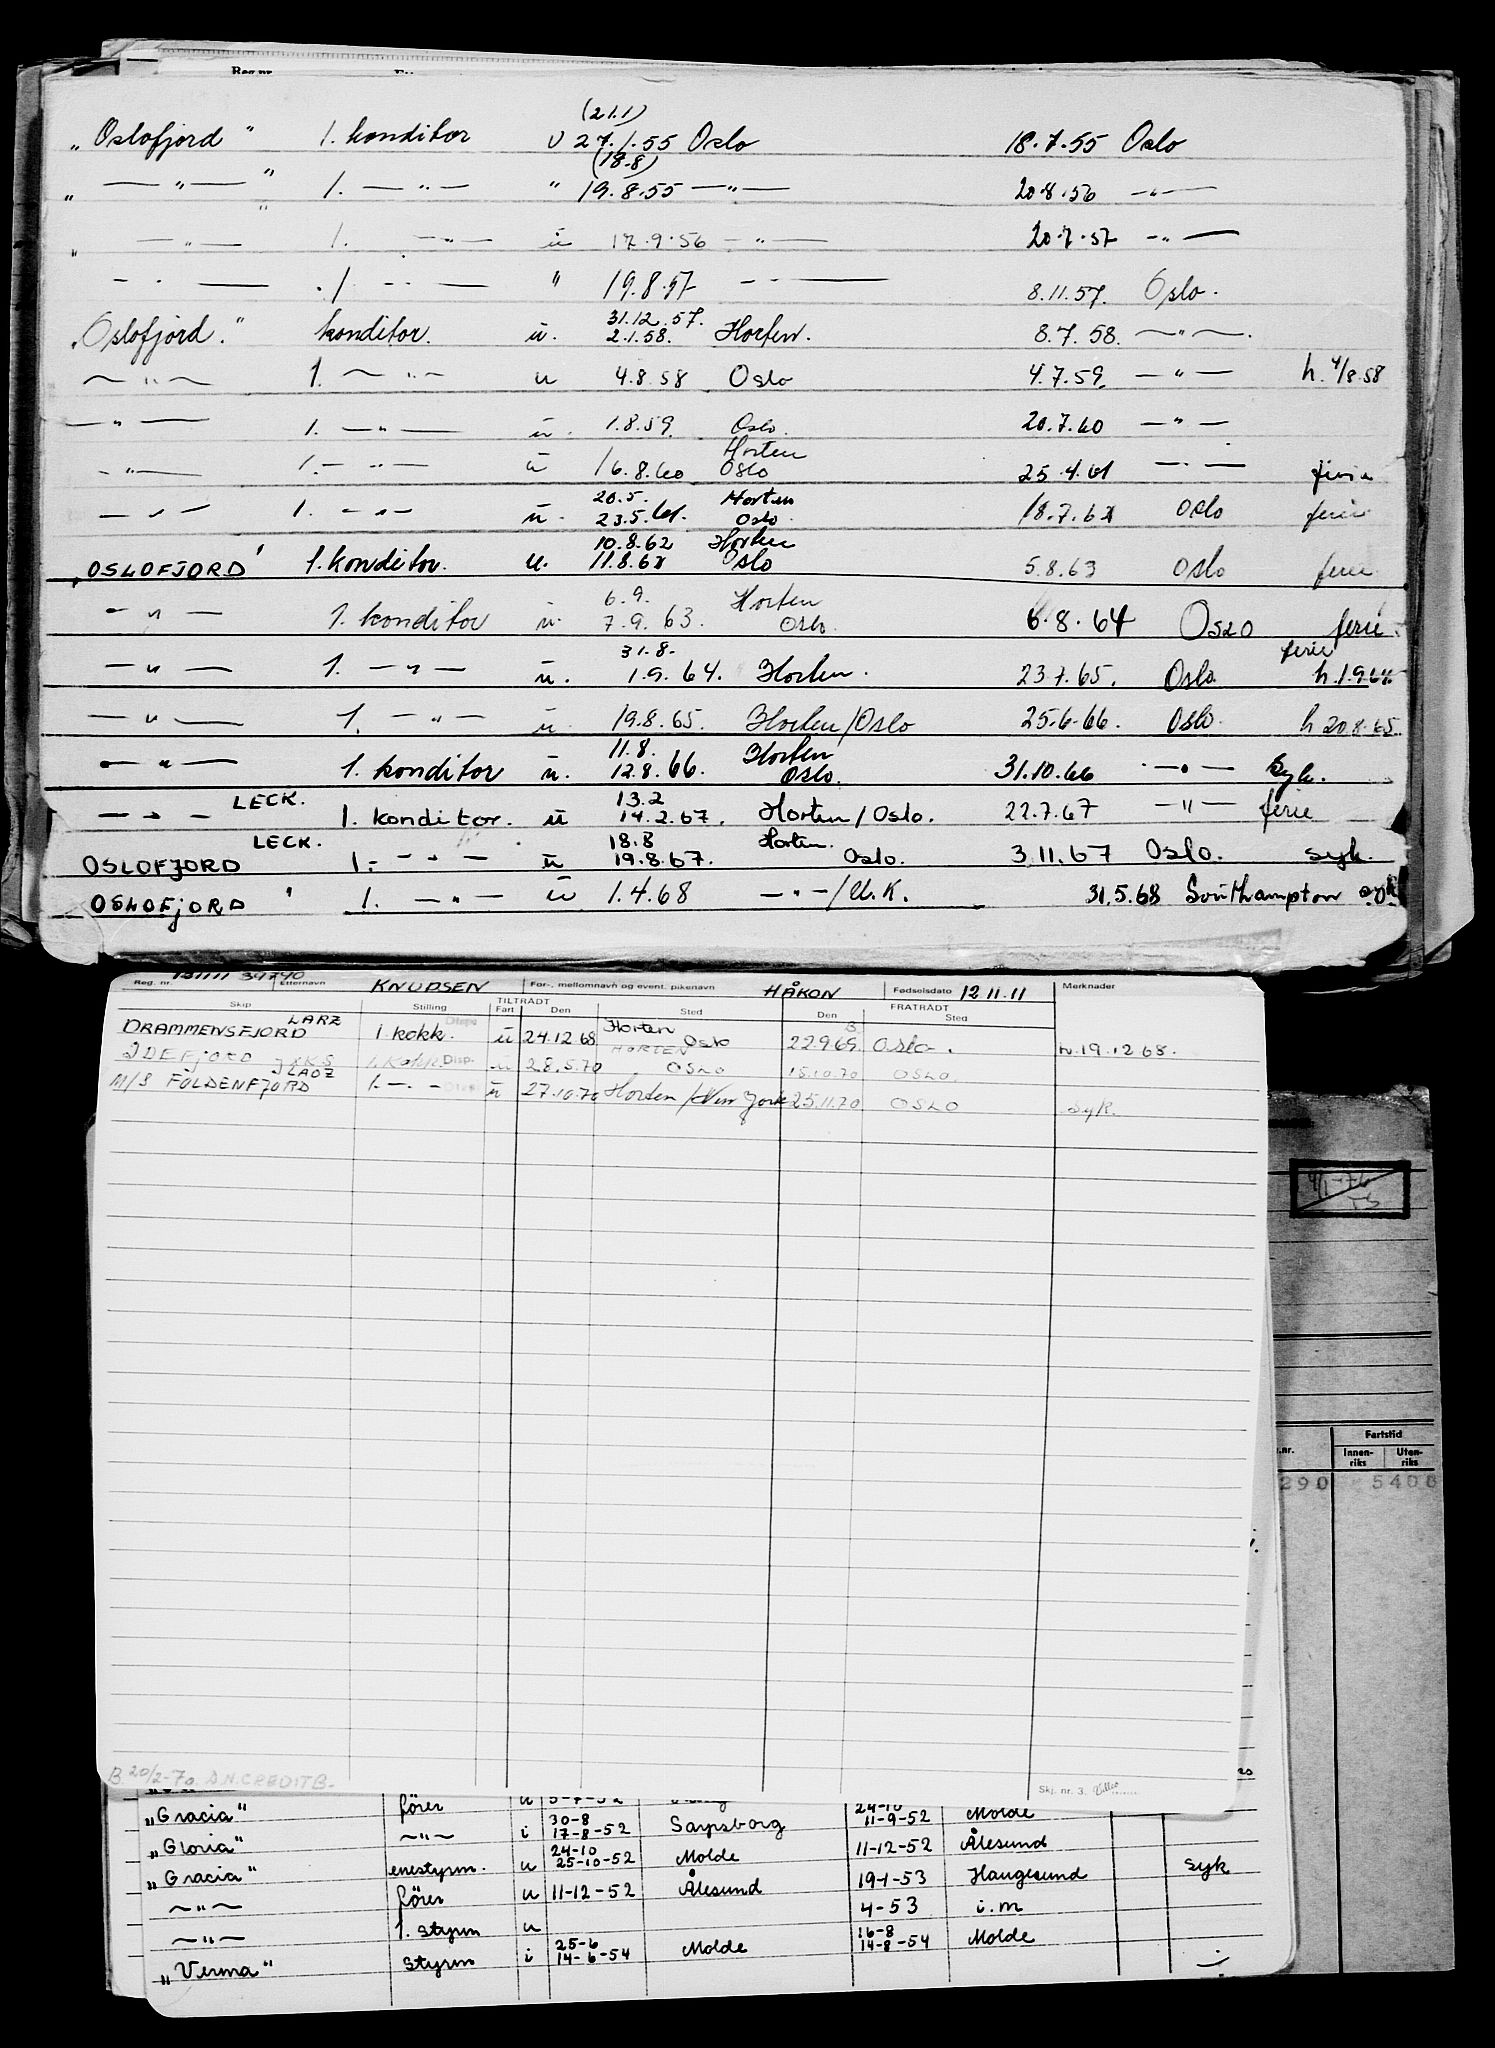 (21.1)
„Oslofjord" 1. konditor u 27.1.55 Oslo 18.7.55 Oslo
(18.8)
„ —"— " 1. —"— " 19.8.55 —"— 20.8.56 —"—
„ —"— " 1. —"— u 17.9.56 —"— 20.7.57 —"—
—"— 1. —"— " 19.8.57 —"— 8.11.57. Oslo.
31.12.57.
„Oslofjord." konditor. u. 2.1.58. Horten. 8.7.58. —"—.
—"— 1. —"— u 4.8.58 Oslo 4.7.59. —"— h. 4/8 58
—"— 1. —"— u. 1.8.59. Oslo. 20.7.60 —"—
Horten
—"— 1. —"— u 16.8.60 Oslo 25.4.61 —"— ferie
20.5. Horten
—"— 1. —"— u. 23.5.61. Oslo. 18.7.62 Oslo ferie
10.8.62 Horten
„OSLOFJORD" 1. konditor. u. 11.8.62 Oslo 5.8.63 Oslo ferie
6.9. Horten
—"— 1. konditor u. 7.9.63. Oslo. 6.8.64 OSLO ferie.
31.8. ferie
—"— 1. —"— u. 1.9.64. Horten. 23.7.65. Oslo h.1.9.64
—"— 1. —"— u. 19.8.65. Horten/Oslo 25.6.66. Oslo. h 20.8.65.
11.8. Horten
—"— 1. konditor u. 12.8.66. Oslo. 31.10.66 —"— syk.
LECK. 13.2
—"— 1. konditor. u 14.2.67. Horten/Oslo. 22.7.67 —"— ferie
LECK. 18.8 Horten.
OSLOFJORD 1. —"— u 19.8.67. Oslo. 3.11.67 Oslo. syk.
OSLOFJORD ' 1. —"— u 1.4.68 —"—/U.K. 31.5.68 Southampton syk.
Reg. nr. 131111 39740 Etternavn KNUDSEN For-, mellomnavn og event. pikenavn HÅKON Fødselsdato 12.11.11 Merknader
Skip Stilling TILTRÅDT Fart Den Sted FRATRÅDT Den Sted
LARZ
DRAMMENSFJORD 1. kokk. Disp. u 24.12.68 Horten Oslo 22.9.69. Oslo. h.19.12.68.
IDEFJORD JXKS 1. Kokk Disp. u 28.5.70 HORTEN OSLO 15.10.70 OSLO
LADZ
M/S FOLDENFJORD 1. —"— u 27.10.70 Horten/New York 25.11.70 OSLO Syk.
4/1-76
n.nr. Fartstid
Innenriks Utenriks
290 5400
B. 20/2-70. D.N.CREDITB.
Skj. nr. 3.
„Gracia" fører u 5-7-52 24-10
„Gloria" —"— i 30-8 17-8-52 Sarpsborg 11-9-52 Molde
„Gracia" enestyrm. u 24-10 25-10-52 Molde 11-12-52 Ålesund
—"— fører u 11-12-52 Ålesund 19-1-53 Haugesund syk
—"— 1. styrm u 4-53 i.m
„Verma" styrm i 25-6 14-6-54 Molde 16-8 14-8-54 Molde